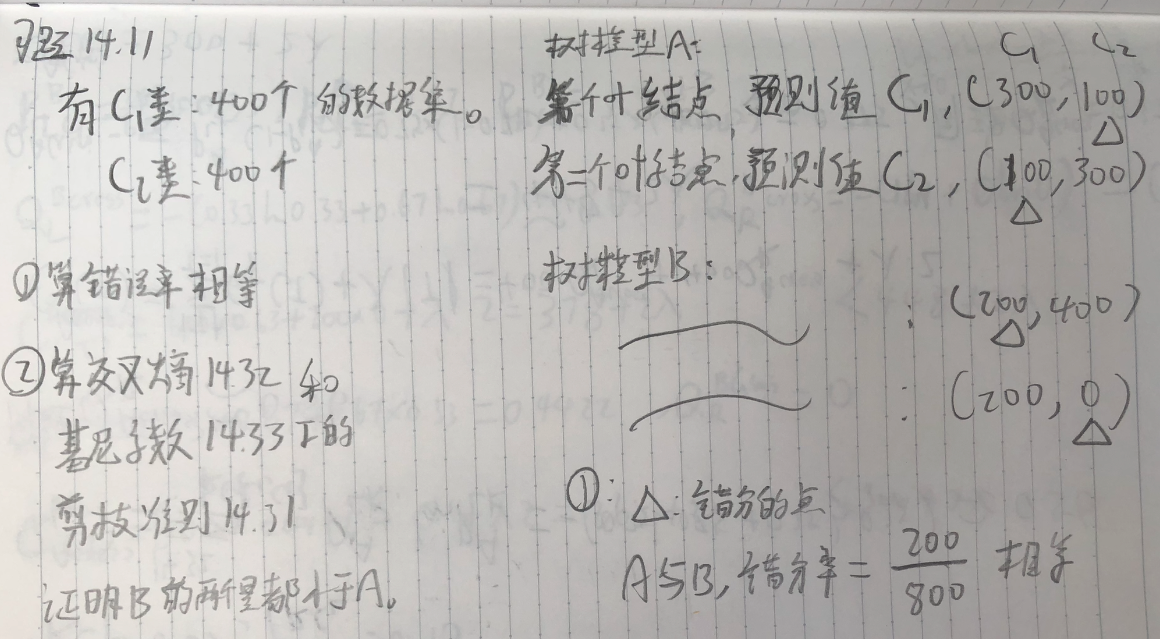 习题 14.11
有 C₁类:400个 的数据集。
C₂类:400个
① 算错误率相等
② 算交叉熵 14.32 和
基尼子数 14.33 下的
剪枝准则 14.31
证明B的两个量都小于A。
树模型A: C₁ C₂
第一个叶结点,预测值 C₁,(300,100)
第二个叶结点,预测值 C₂,(100,300)
树模型B:
: (200,400)
: (200,0)
①: △:错分的点
A与B,错分率 = 200/800 相等